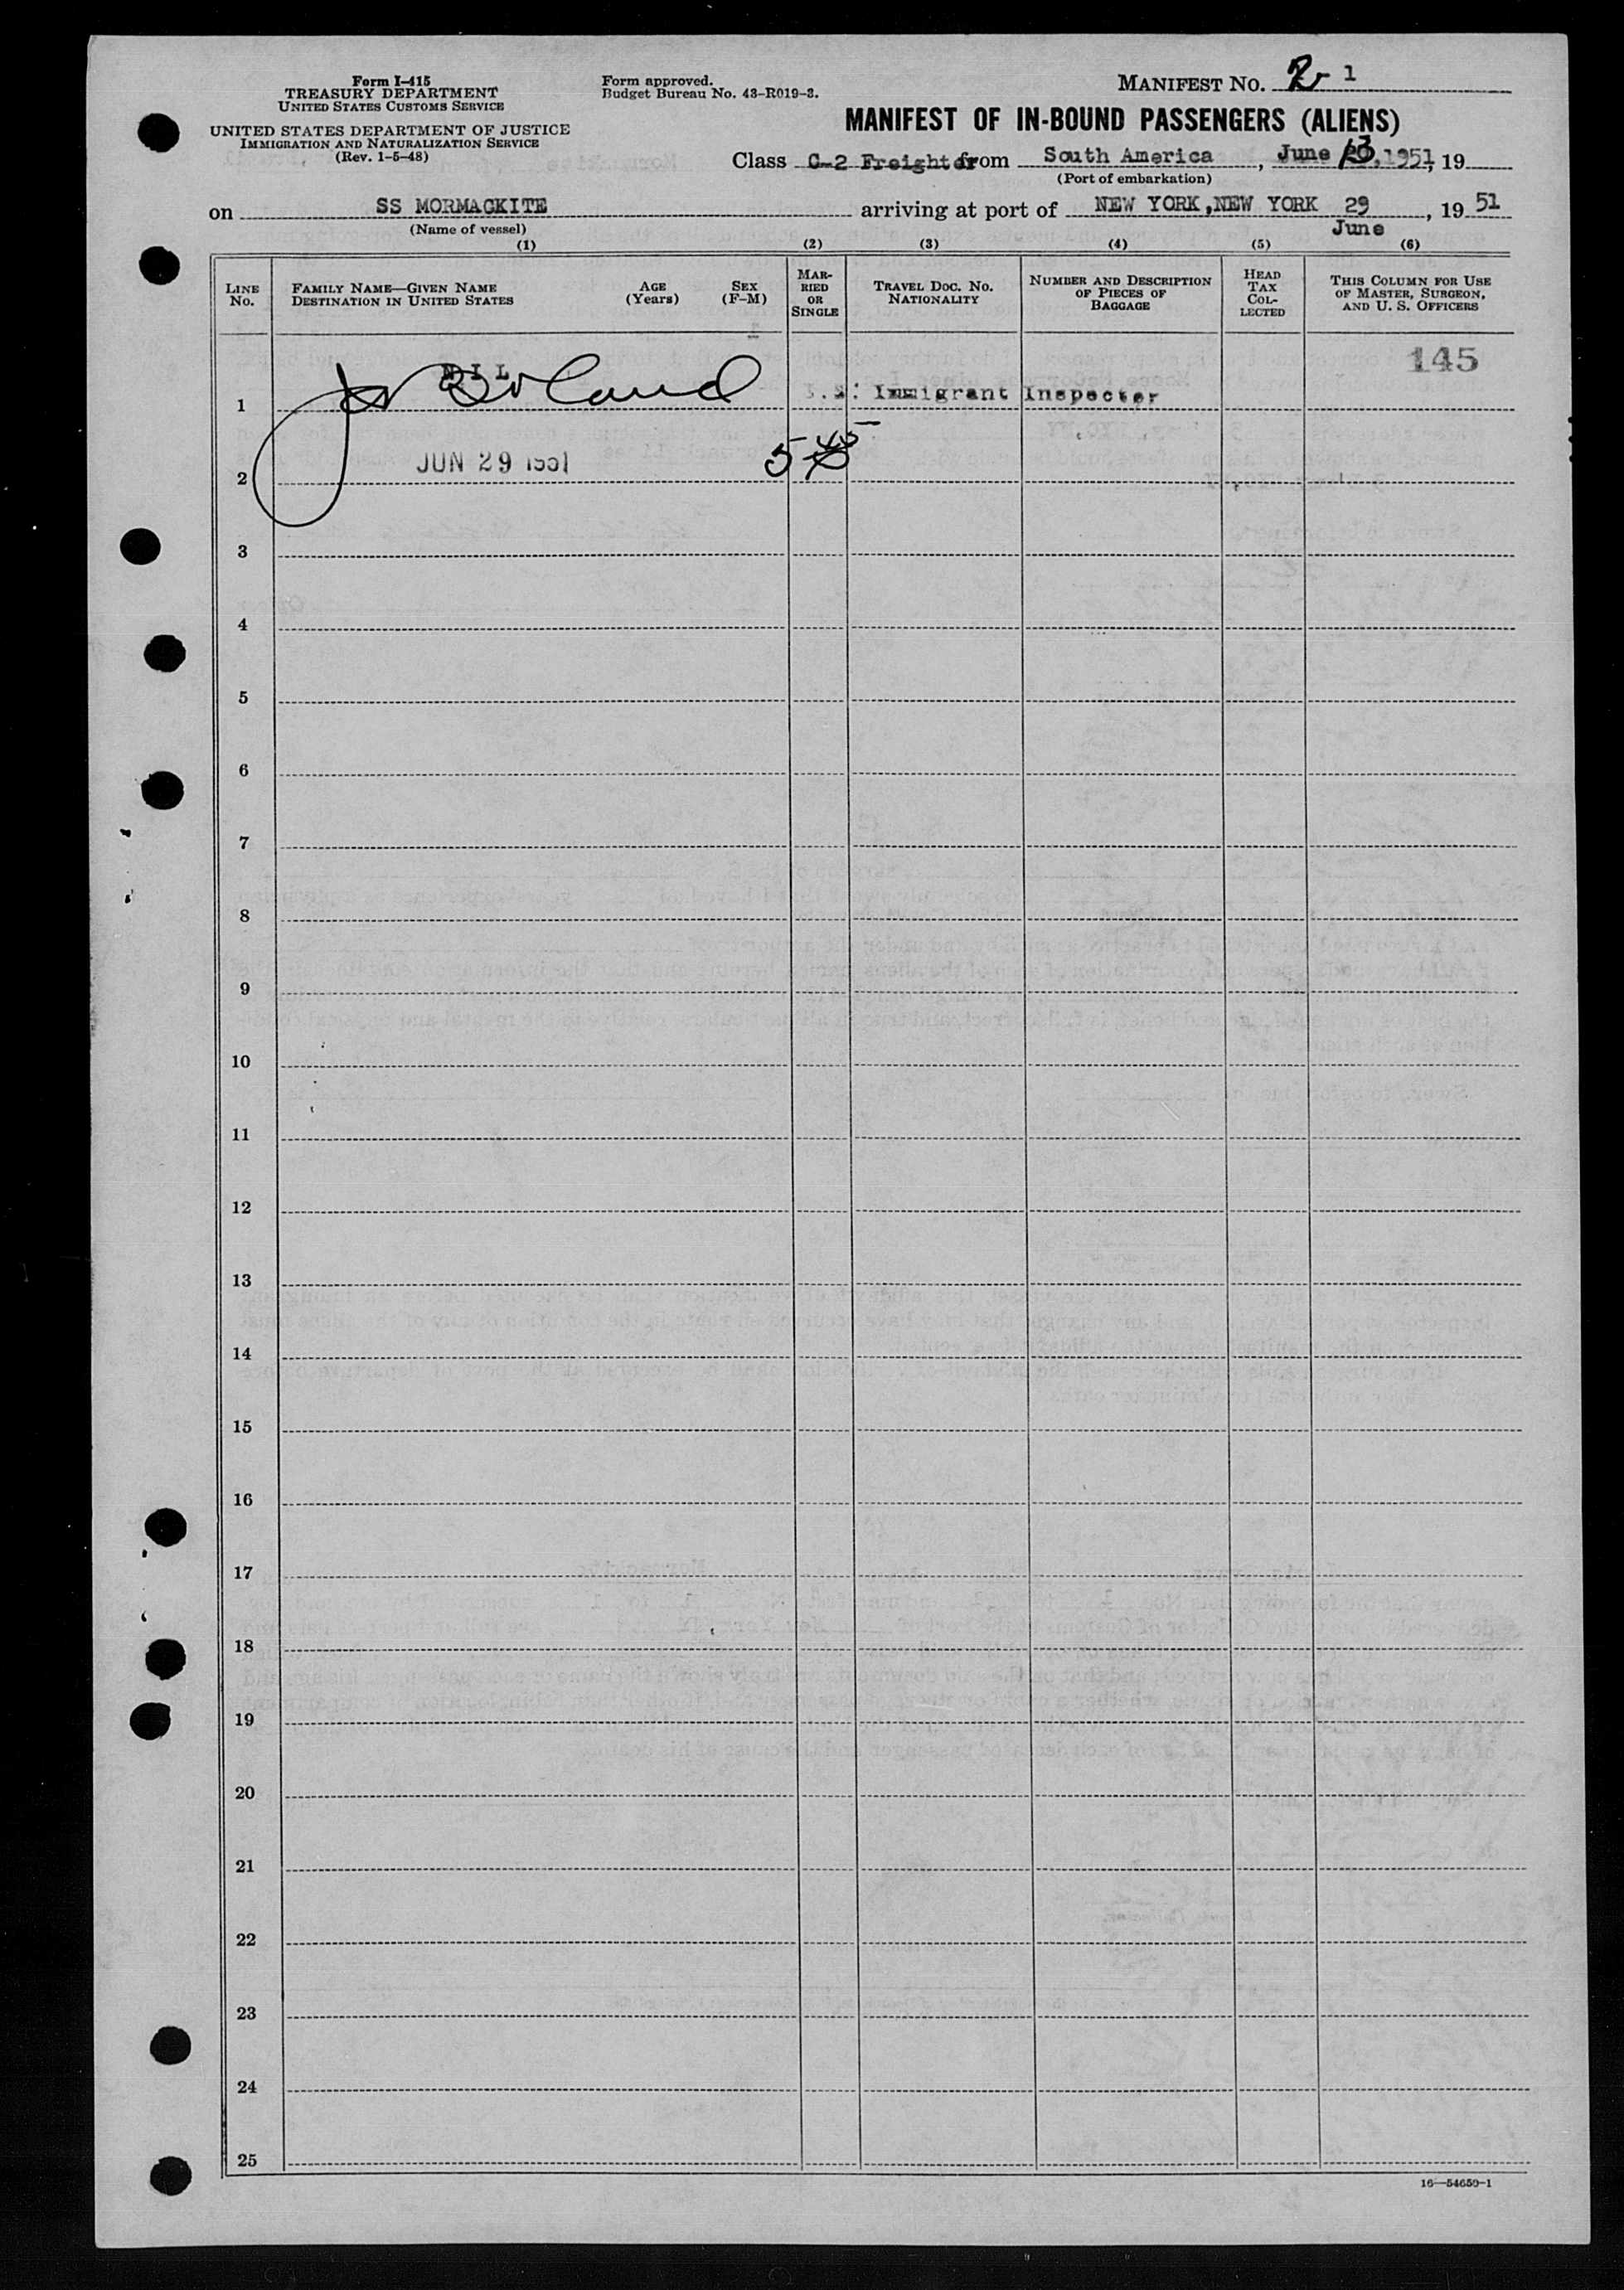 Form I-415
TREASURY DEPARTMENT
UNITED STATES CUSTOMS SERVICE
UNITED STATES DEPARTMENT OF JUSTICE
IMMIGRATION AND NATURALIZATION SERVICE
(Rev. 1-5-48)
Form approved.
Budget Bureau No. 43-R019-3.
MANIFEST NO. 2 1
MANIFEST OF IN-BOUND PASSENGERS (ALIENS)
Class C-2 Freighter from South America, June 13, 1951, 19
(Port of embarkation)
on SS MORMACKITE arriving at port of NEW YORK, NEW YORK 29 June, 19 51
(Name of vessel)
(1) (2) (3) (4) (5) (6)
LINE No. FAMILY NAME—GIVEN NAME DESTINATION IN UNITED STATES AGE (Years) SEX (F-M) MARRIED OR SINGLE TRAVEL DOC. NO. NATIONALITY NUMBER AND DESCRIPTION OF PIECES OF BAGGAGE HEAD TAX COLLECTED THIS COLUMN FOR USE OF MASTER, SURGEON, AND U. S. OFFICERS
145
NIL
1 Immigrant Inspector
2 JUN 29 1951
3
4
5
6
7
8
9
10
11
12
13
14
15
16
17
18
19
20
21
22
23
24
25
16—54650-1